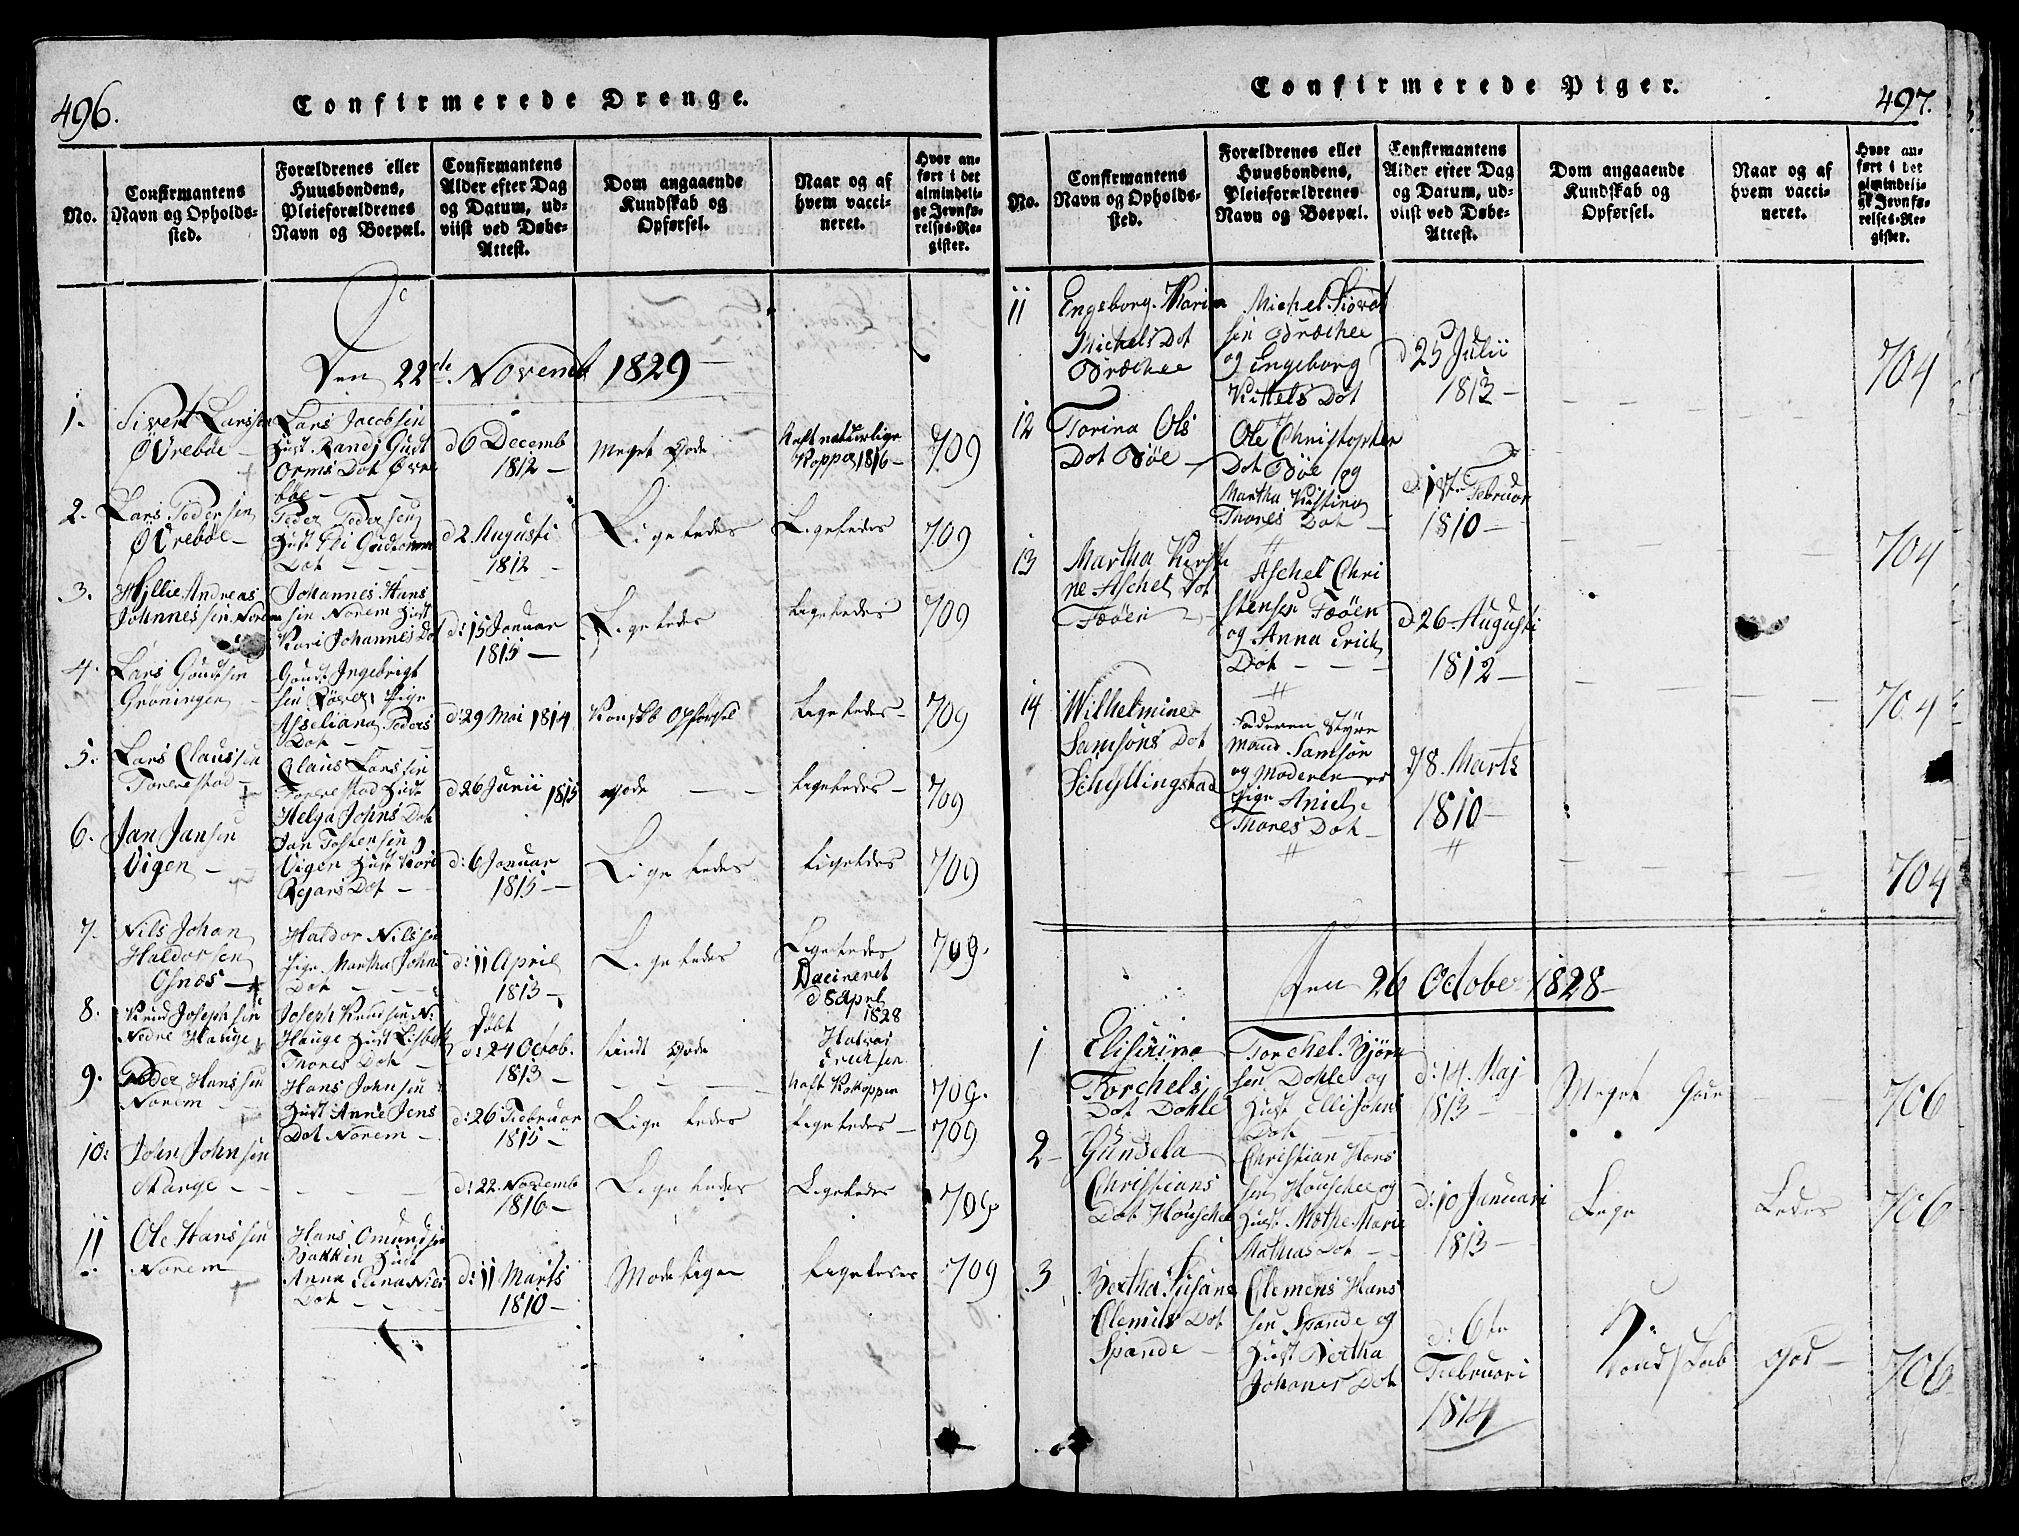 496.
Confirmerede Drenge.
No.
Confirmantens
Navn og Opholds-
sted.
Forældrenes eller
Huusbondens,
Pleieforældrenes
Navn og Boepæl.
Confirmantens
Alder efter Dag
og Datum, ud-
viist ved Døbe-
Attest.
Dom angaaende
Kundskab og
Opførsel.
Naar og af
hvem vacci-
neret.
Hvor an-
ført i det
almindeli-
ge Jevnfø-
relses-Re-
gister.
Den 22de Novemb 1829
1.
Sivert Larssen
Øvrebøe
Lars Jacobsen
Hust Randj Gudt
Orms Dot Øvre
bøe
d 6 Decemb
1812
Meget Gode
Haft naturlige
Kopper 1816
709
2.
Lars Pedersen
Øvrebøe
Peder Pedersen
Hust Eli
Dot
d 2 Augusti
1812
Ligeledes
Ligeledes
709
3.
Hillie Andreas
Johnnessen Norem
Johannes Hans
sen Norem Hust
Kari Johannes Dot
d: 15 Januar
1815
Ligeledes
Ligeledes
709
4.
Lars Gundsen
Grøningen
Gund: Ingebrigt
sen Pige
Asseliana Peders
Dot
d: 29 Mai 1814
Kundsk Opførsel
Ligeledes
709
5.
Lars Claussen
Torrestad
Claus Larssen
Torrestad Hust
Helga Johns Dot
d 26 Junii 1815
Gode
Ligeledes
709
6.
Jan Jansen
Vigen
Jan Tostensen
Vigen Hust Kari
Dot
d: 6 Januar
1815
Ligeledes
Ligeledes
709
7.
Nils Johan
Haldorsen
Osnæs
Haldor Nilssen
Pige Martha Johns
Dot
d: 11 April
1813
Ligeledes
Ligeledes
709.
8.
Knud Josephsen
Nedre Hauge
Joseph Knudsen N:
Hauge Hust Lisbeth
Thores Dot
døbt
d: 24 Octob.
1813
Gode
Vacineret
d 8 April
1828
709.
9.
Peder Hanssen
Norem
Hans Johnsen
Hust Anne Jens
Dot Norem
d: 26 Februar
1815
Ligeledes
Haft Kokopper
Ligeledes
709
10:
John Johnsen
Stange
d: 22. Novemb
1816
Ligeledes
Ligeledes
709
11
Ole Hanssen
Norem
Hans Omundsen
Bakken Hust
Anna Elina Nils
Dot
d: 11 Marts
1810
Ligeledes
709
497.
Confirmerede Piger.
No.
Confirmantens
Navn og Opholds-
sted.
Forældrenes eller
Huusbondens,
Pleieforældrenes
Navn og Boepæl.
Confirmantens
Alder efter Dag
og Datum, ud-
viist ved Døbe-
Attest.
Dom angaaende
Kundskab og
Opførsel.
Naar og af
hvem vacci-
neret.
Hvor an-
ført i det
almindeli-
ge Jevnfø-
relses-Re-
gister.
11
Engeborg Karina
Michels Dot
Bræchee
Michel Siovat
sen Bræchee
og Engeborg
Kittels Dot
d 25 Julii
1813
704
12
Torina Ols
Dot Bøe
Ole Christopher
Dot Bøe og
Martha Kirstina
Thores Dot
d: 17 Februar
1810
704
13
Martha Kirsti
ne Aschel Dot
Fæøen
Aschel Chri
stensen Fæøen
og Anna Erich
Dot
d 26 Augusti
1812
704
14
Wilhelmine
Samsons Dot
Schyllingstad
Faderen Styre
mand Samson
og Moderen er
Pige Aniel
Thores Dot
d 8. Marts
1810
704
Den 26 October 1828
1
Elisirina
Torchels
Dot Dokle
Torchel Bjørn
sen Dokle og
Hust Elli Johns
Dot
d: 14. Maj
1813
Meget Gode
706
2
Gundela
Christians
Dot Houschee
Christian Hans
sen Houschee og
Hust Mathe Marie
Mathias Dot
d: 10 Januari
1813
Lige
Ledes
706
3
Bertha Susane
Clemits Dot
Spande
Clemens Hans
sen Spande og
Hust Bertha
Johanes Dot
d: 6te
Februari
1814
Kundskab
God
706